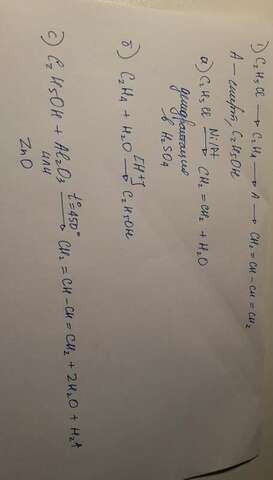 1) C₂H₅Cl → C₂H₄ → A → CH₂=CH-CH=CH₂
A – спирт, C₂H₅OH
а) C₂H₅Cl Ni/Pt→ CH₂=CH₂ + H₂O
дегидратация
в H₂SO₄
б) C₂H₄ + H₂O [H+]→ C₂H₅OH
с) C₂H₅OH + Al₂O₃ t°=450°→ CH₂=CH-CH=CH₂ + 2H₂O + H₂↑
или
ZnO